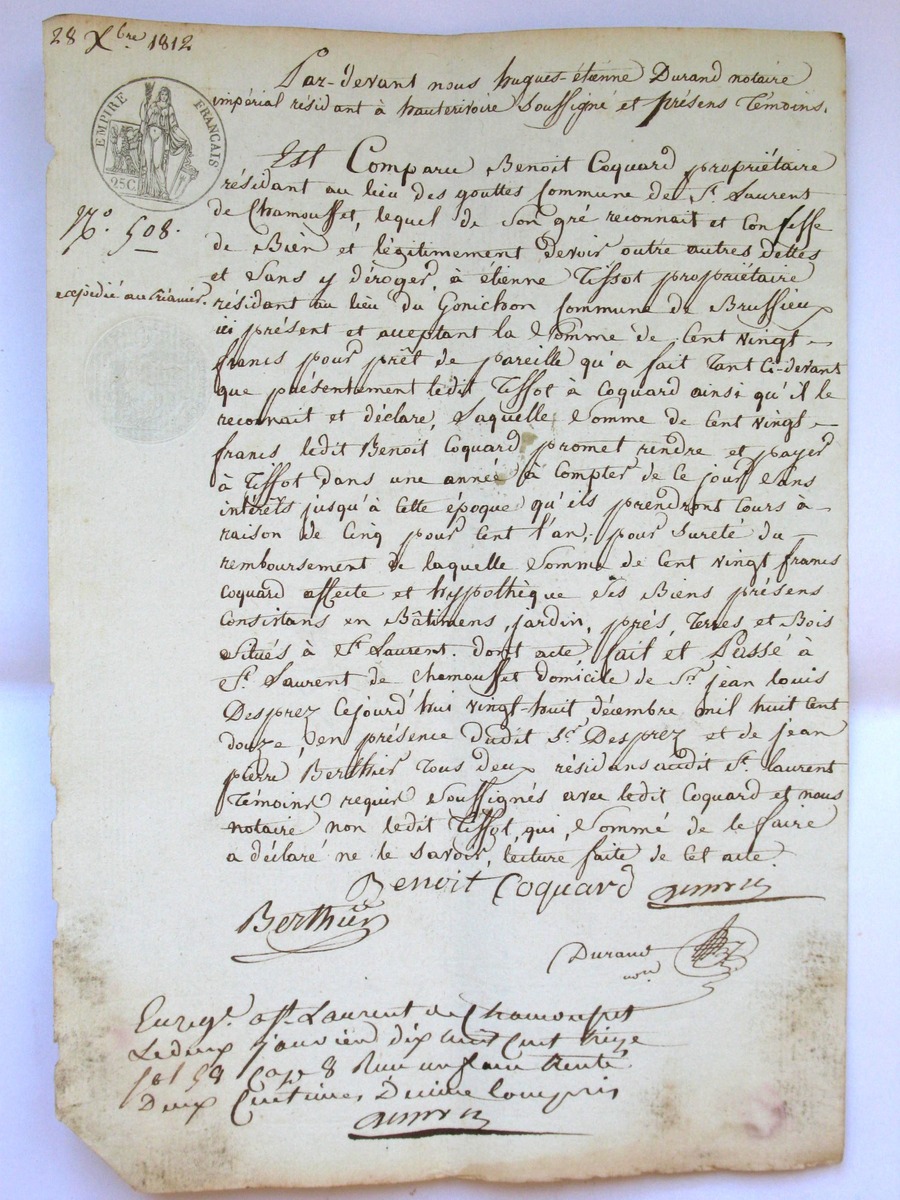 28 Xbre 1812
EMPIRE FRANÇAIS
25C
No. 508.
expédié au créancier.
Par-devant nous hugues-étienne Durand notaire
impérial résidant à hauterivoire Soussigné et présens Témoins.
Est Comparu Benoit Coquard propriétaire
résidant au lieu des gouttes Commune de St. Laurent
de Chamousset, lequel de Son gré reconnait et Confesse
de Bien et légitimement devoir outre autres dettes
et Sans y déroger, à étienne Tissot propriétaire
résidant au lieu du Gonichon Commune de Brussieu
ici présent et acceptant la Somme de Cent vingt
francs pour prêt de pareille qu'a fait Tant Ci-devant
que présentement ledit Tissot à Coquard ainsi qu'il le
reconnait et déclare, Laquelle Somme de Cent vingt
francs ledit Benoit Coquard promet rendre et payer
à Tissot dans une année à Compter de Ce jour Sans
intérêts jusqu'à Cette époque qu'ils prendront Cours à
raison de Cinq pour Cent l'an; pour Sureté du
remboursement de laquelle Somme de Cent vingt francs
Coquard affecte et hypothèque Ses Biens présens
Consistans en Bâtimens, jardin, prés, Terres et Bois
Situés à St. Laurent. dont acte fait et Passé à
St. Laurent de Chamousset domicile de Sr. jean louis
Desprez Cejourd'hui vingt-huit décembre mil huit Cent
douze, en présence dudit Sr. Desprez et de jean
pierre Berthier Tous deux résidans audit St. laurent
Témoins requis Soussignés avec ledit Coquard et nous
notaire non ledit Tissot, qui, Sommé de le faire
a déclaré ne le Savoir, lecture faite de Cet acte.
Benoit Coquard
Berthier
Durand
nore
Enregé. a St. Laurent de Chamousset
Le deux janvier dix huit Cent treize
fo 158 Case 8 Reçu un franc trente
Deux Centimes Decime Compris